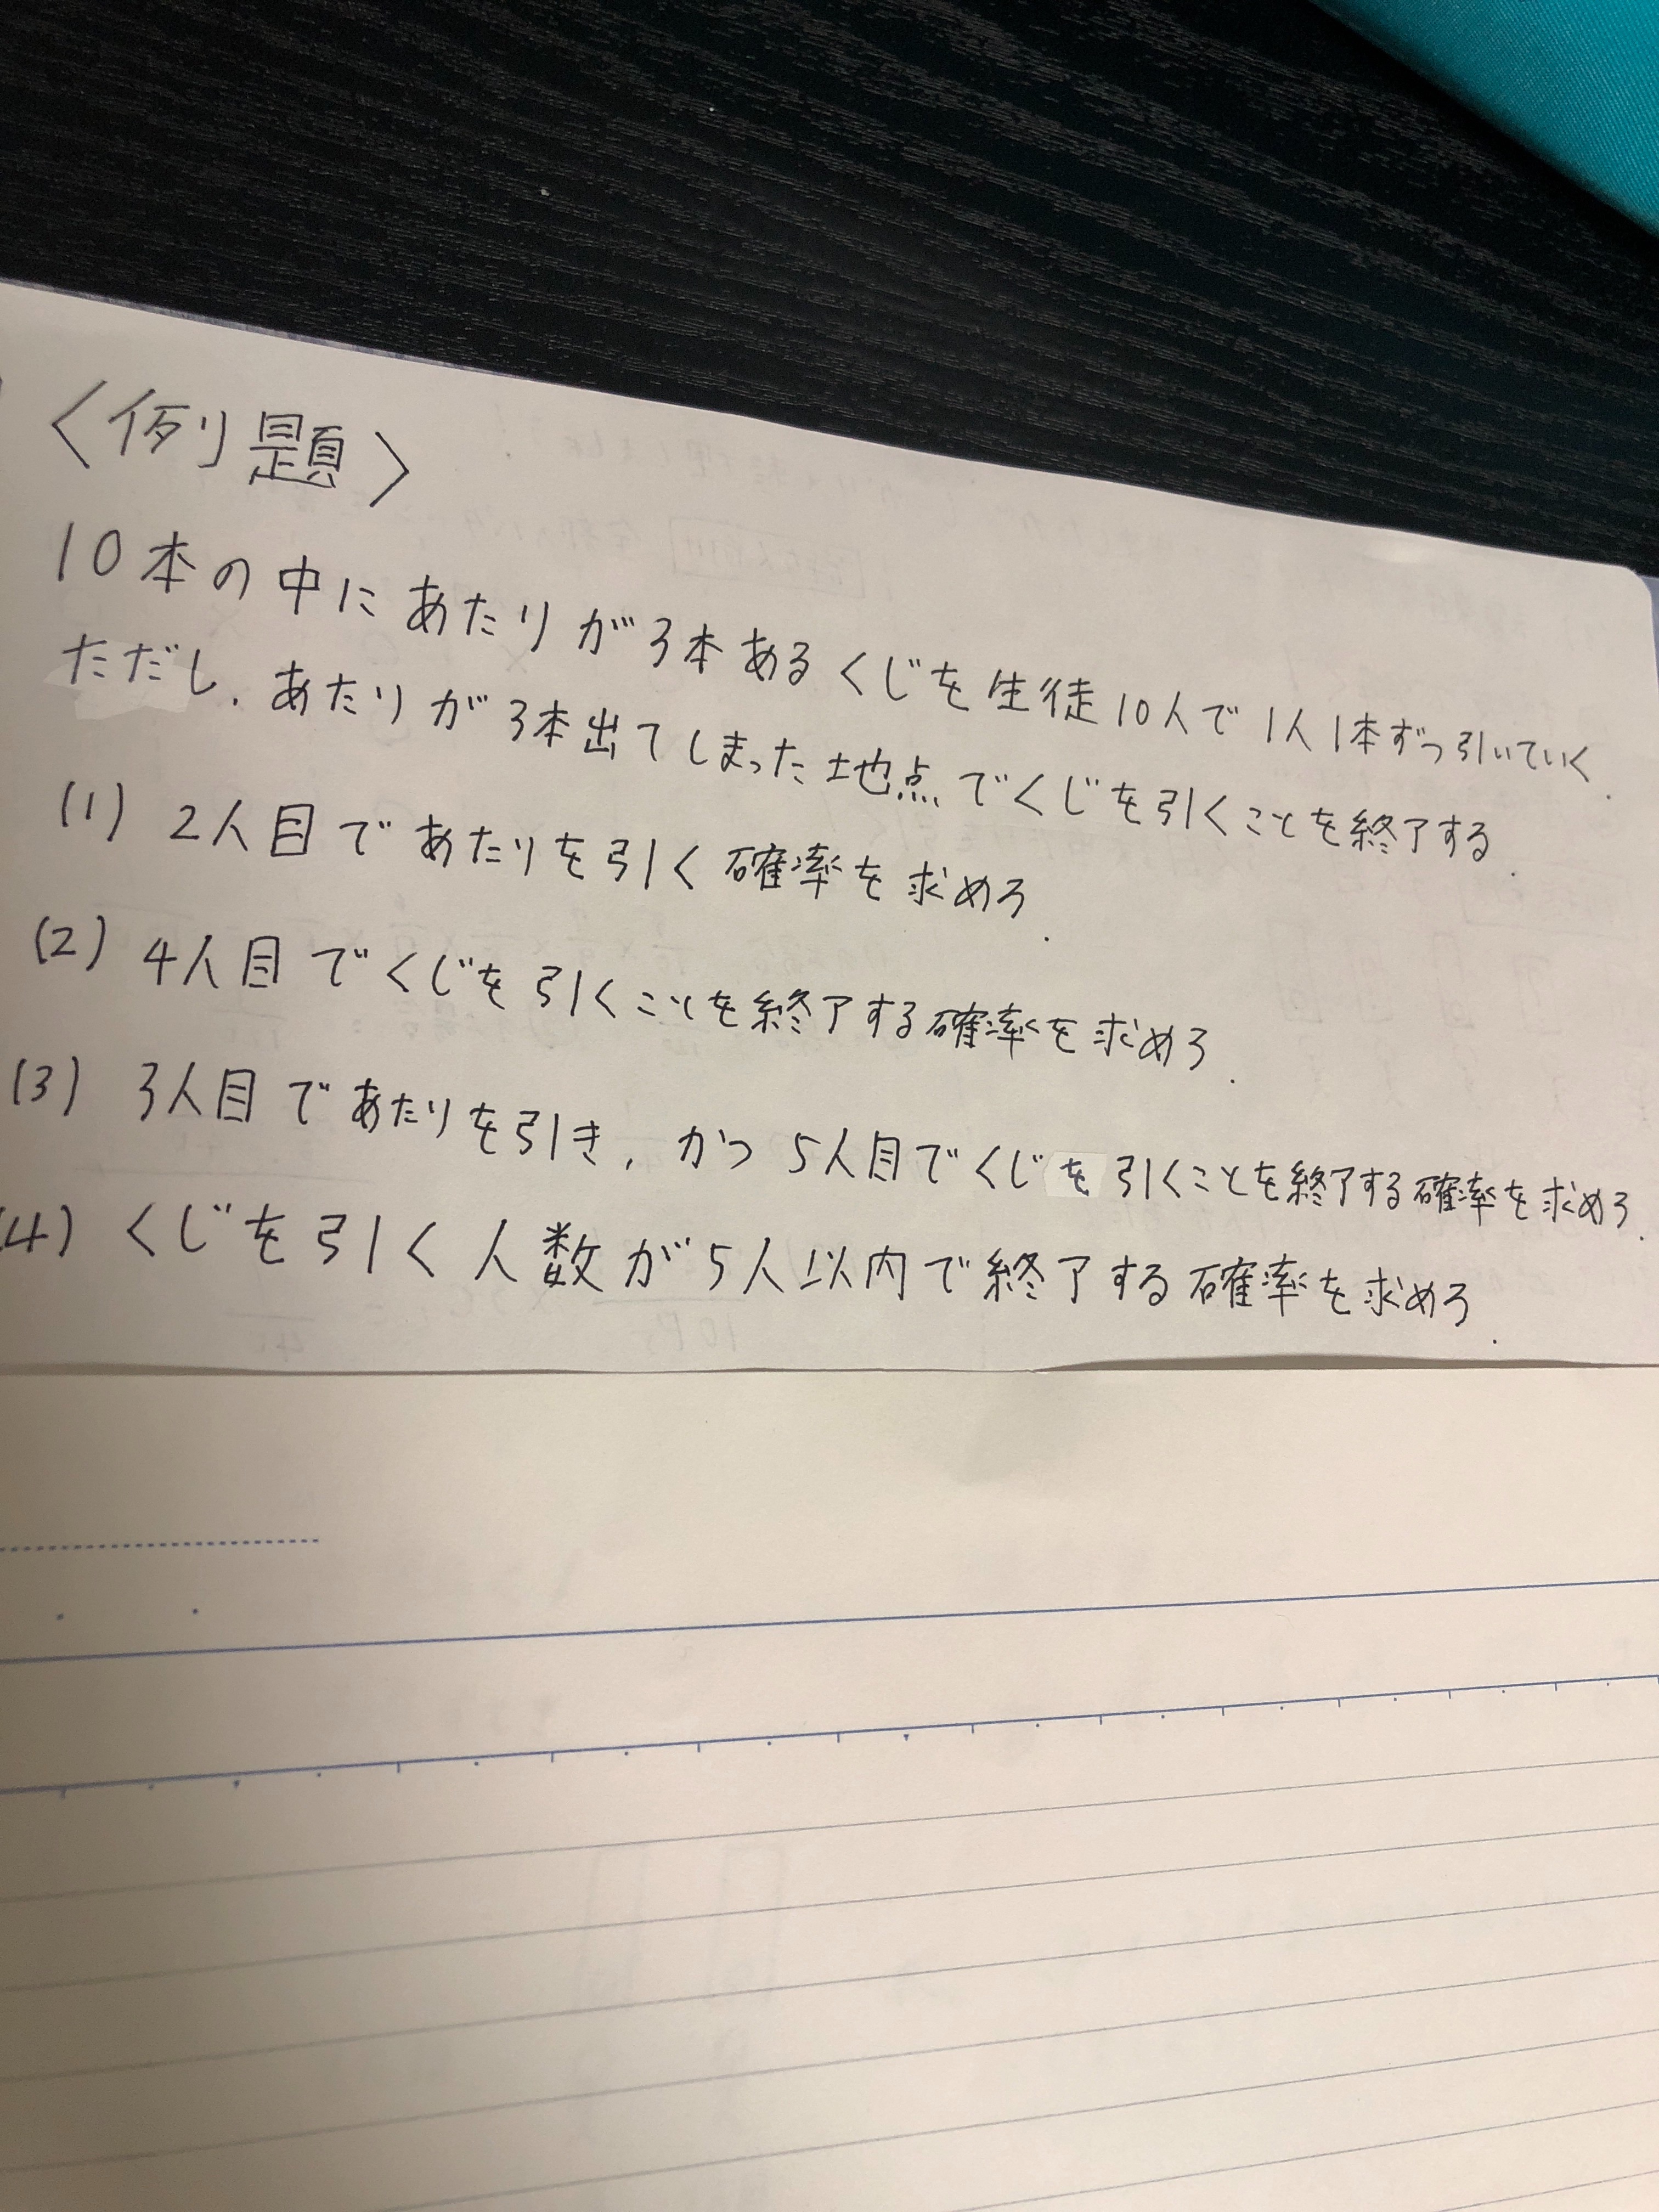 〈例題〉
10本の中にあたりが3本あるくじを生徒10人で1人1本ずつ引いていく.
ただし,あたりが3本出てしまった地点でくじを引くことを終了する.
(1) 2人目であたりを引く確率を求めろ.
(2) 4人目でくじを引くことを終了する確率を求めろ.
(3) 3人目であたりを引き,かつ5人目でくじを引くことを終了する確率を求めろ.
(4) くじを引く人数が5人以内で終了する確率を求めろ.